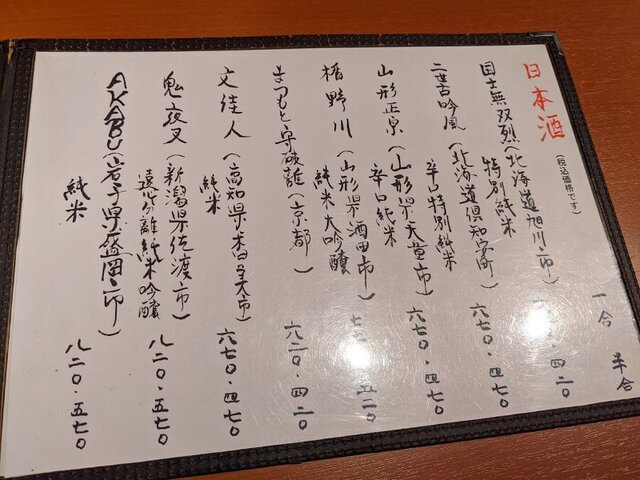 日本酒
(税込価格です)
一合 半合
国士無双烈(北海道旭川市)
特別純米
四二〇
二世古吟風(北海道倶知安町)
辛口特別純米
六七〇・四七〇
山形正宗(山形県天童市)
辛口純米
六七〇・四七〇
楯野川(山形県酒田市)
純米大吟醸
五二〇
まつもと守破離(京都)
六二〇・四二〇
文佳人(高知県香美市)
純米
六七〇・四七〇
鬼夜叉(新潟県佐渡市)
遠心分離純米吟醸
八二〇・五七〇
AKABU(岩手県盛岡市)
純米
八二〇・五七〇